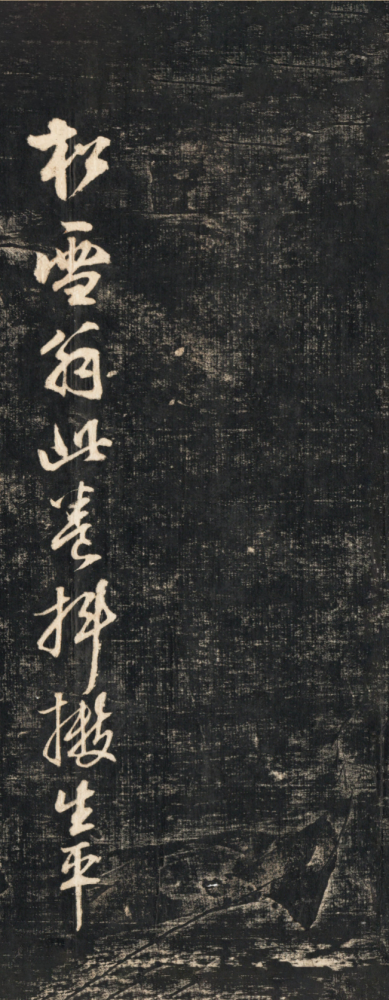 松雪翁此卷抖擻生平